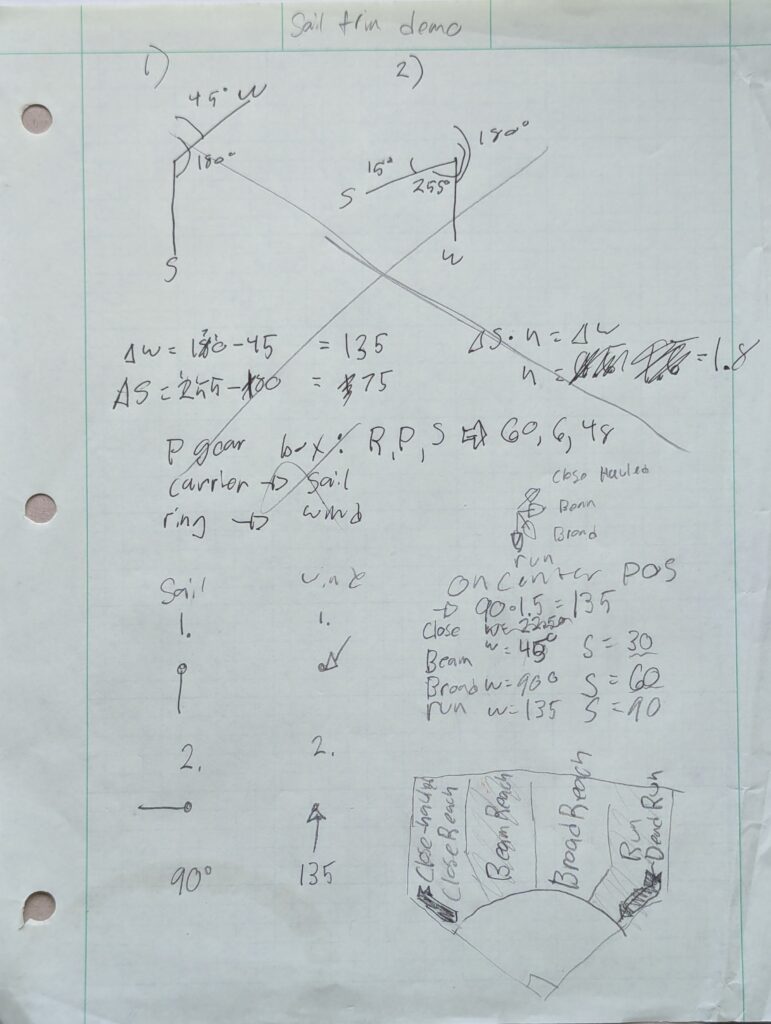 Sail trim demo
1)
2)
45° W
180°
S
180°
15°
255°
S
W
ΔW = 180-45 = 135
ΔS = 255-180 = 75
ΔS · n = ΔW
n = = 1.8
P gear box: R, P, S => 60, 6, 48
carrier -> Sail
ring -> wind
Close Hauled
Beam
Broad
run
Sail
wind
1.
1.
2.
2.
90°
135
On Center POS
-> 90·1.5 = 135
Close w=
Beam w = 45° S = 30
Broad w = 90° S = 60
run w = 135 S = 90
Close-hauled
Close Reach
Beam Reach
Broad Reach
Run
Dead Run